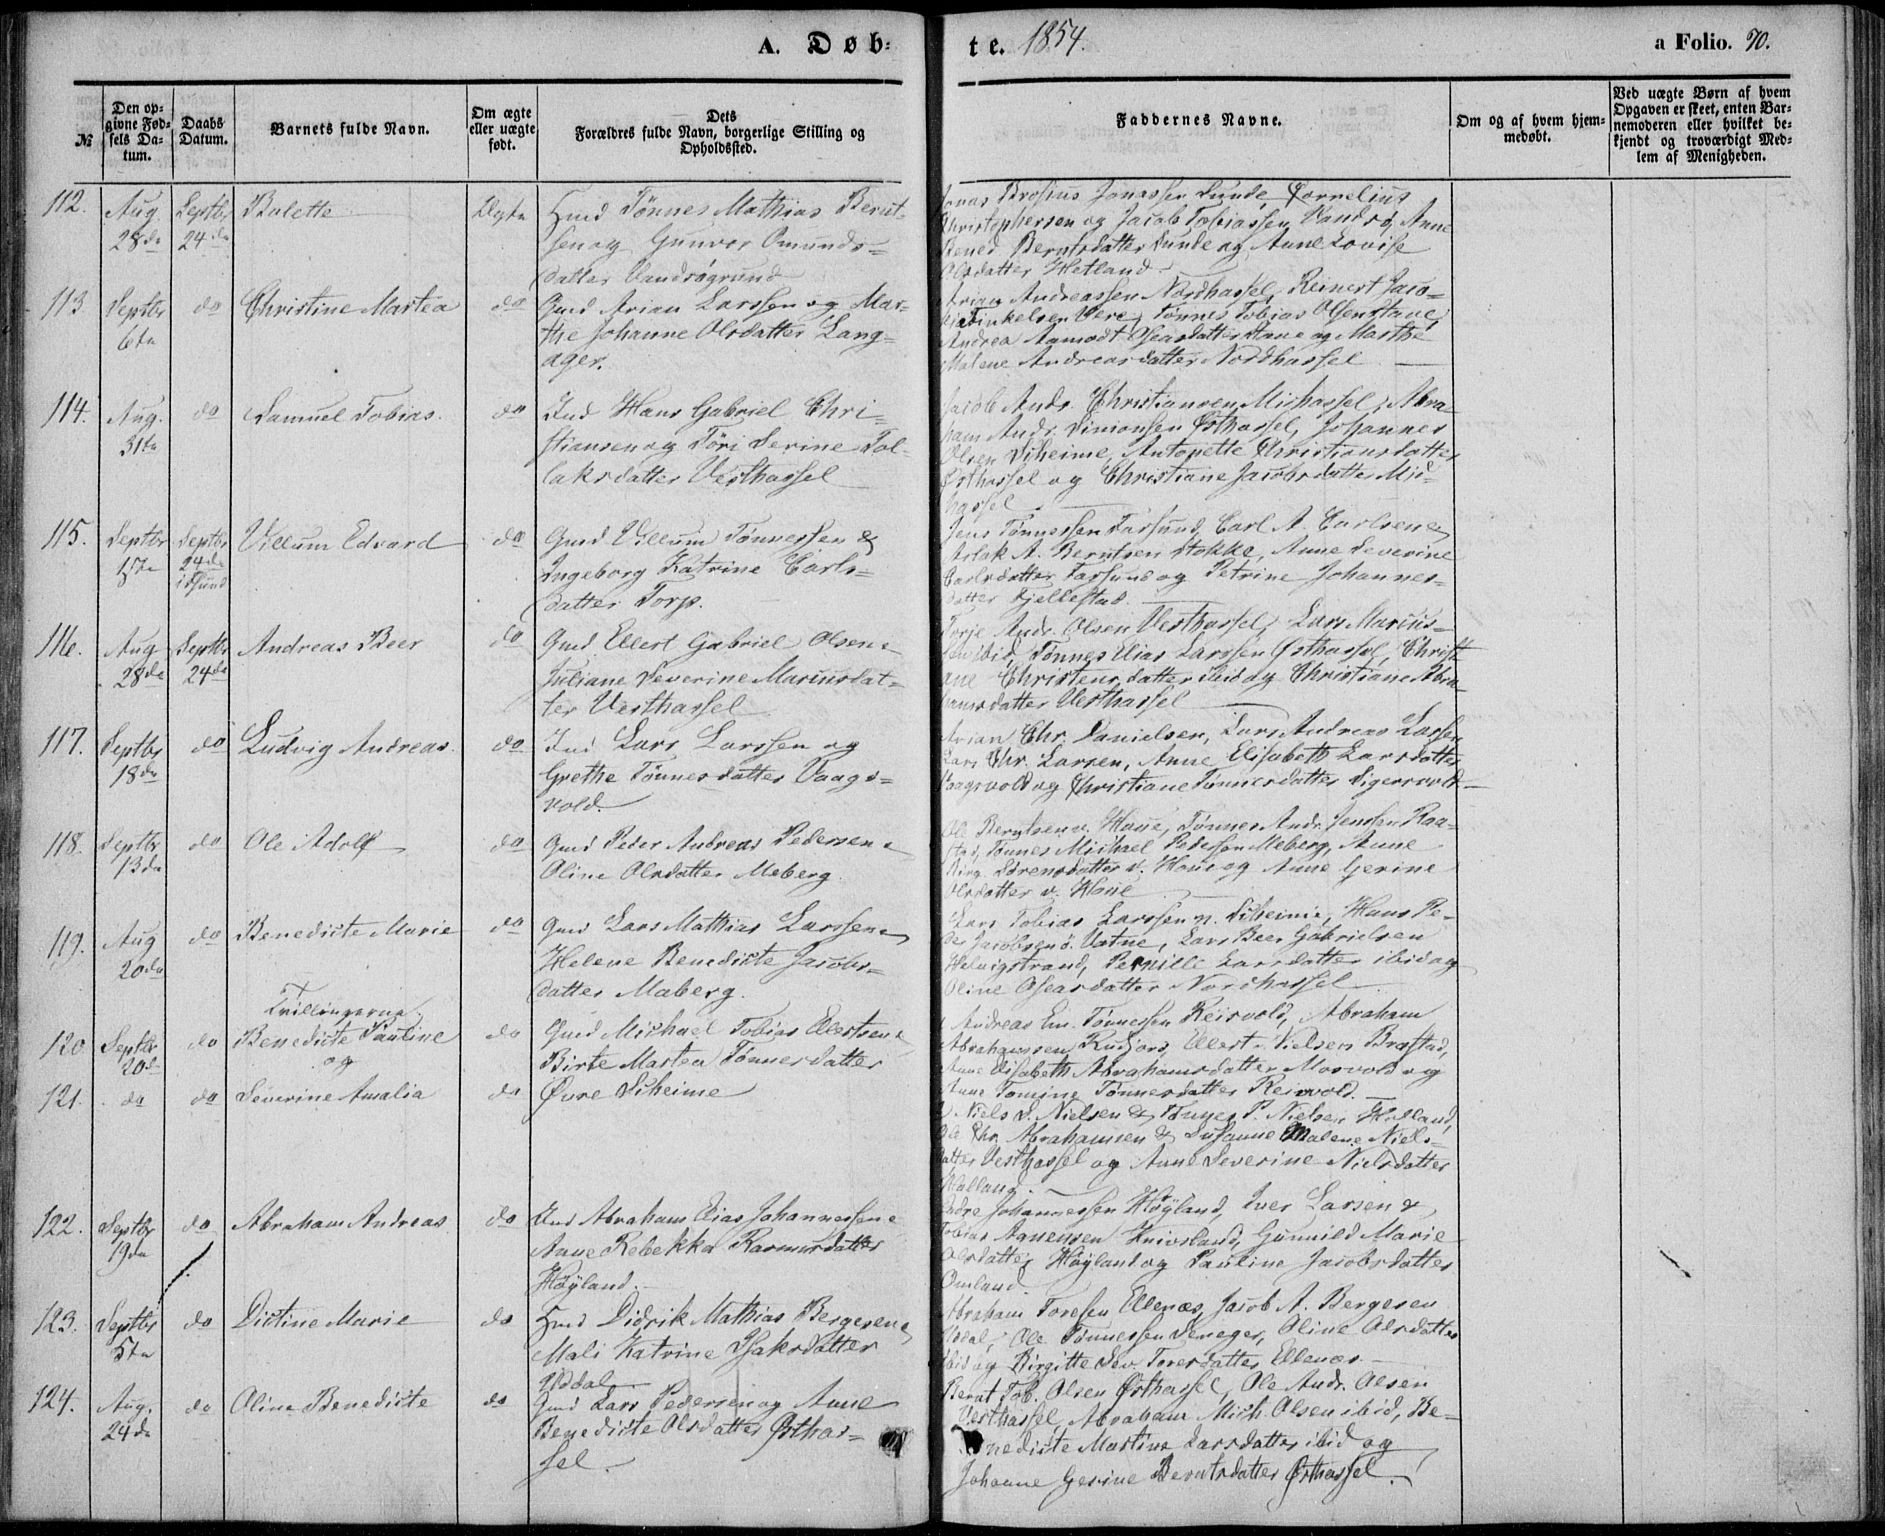 A. Døb-
te. 1854.
a Folio. 70.
№
Den op-
givne Fød-
sels Da-
tum.
Daabs
Datum.
Barnets fulde Navn.
Om ægte
eller uægte
født.
Dets
Forældres fulde Navn, borgerlige Stilling og
Opholdssted.
Faddernes Navne.
Om og af hvem hjem-
medøbt.
Ved uægte Børn af hvem
Opgaven er skeet, enten Bar-
nemoderen eller hvilket be-
kjendt og troværdigt Med-
lem af Menigheden.
112.
Aug.
28de
Septbr
24de
Bolette
Ægte
Hmd Tønnes Mathias Bernt-
sen og Gunvor Omunds-
datter Vandsøgrund
Jonas Brosius Jonassen Lunde, Cornelius
Christophersen og Jacob Tobiassen Vandsø, Anne
Bened. Berntsdatter Lunde og Anne Lovise
Olsdatter Hetland.
113.
Septbr
6te
do
Christine Martea
do
Gmd Arian Larssen og Mar-
the Johanne Olsdatter Lang-
ager.
Arian Andreassen Nordhassel, Reinert Jaco-
Vere, Tønnes Tobias Olsen Stave,
Andrea Aamodt Oseasdatter Stave og Marthe
Malene Andreasdatter Nordhassel
114.
Aug.
31te
do
Samuel Tobias.
do
Ind Hans Gabriel Chri-
stiansen og Töri Serine Tol-
laksdatter Vesthassel
Jacob Andr. Christiansen Midhassel, Abra-
ham Andr. Simonsen Østhassel, Johannes
Olsen Diheime, Antonette Christiansdatter
Østhassel og Christiane Jacobsdatter Mid-
hassel
115.
Septbr
15te
Septbr
24de
i Fsund
Villum Edvard
do
Gmd Villum Tönnessen &
Ingeborg Katrine Carls-
datter Torp.
Jens Tönnessen Farsund, Carl A. Carlsen &
Aslak A. Berntsen Stokke, Anne Severine
Carlsdatter Farsund og Petrine Johannes-
datter Fjellestad.
116.
Aug
28de
Septbr
24de
Andreas Beer
do
Gmd Ellert Gabriel Olsen &
Juliane Severine Mariusdat-
ter Vesthassel
Terje Andr. Olsen Vesthassel, Lars Marius-
sen ibid, Tønnes Elias Larssen Østhassel, Christi-
ane Christensdatter ibid og Christiane Abra-
hamsdatter Vesthassel
117.
Septbr
18de
do
Ludvig Andreas.
do
Ind Lars Larssen og
Grethe Tönnesdatter Vaags-
vold.
Arian Chr. Danielsen, Lars Andreas Larsen
Lars Chr. Larsen, Anne Elisabeth Larsdatter
Vaagsvold og Christiane Tönnesdatter Sigersvold
118.
Septbr
13de
do
Ole Adolf
do
Gmd Peder Andreas Pedersen &
Oline Olsdatter Meberg.
Ole Berntsen v. Haue, Tønnes Andr. Jenssen Raa-
stad, Tønnes Michael Pedersen Meberg, Anne
Birg. Sörensdatter v. Haue og Anne Gerine
Olsdatter v. Haue
119.
Aug
20de
do
Benedicte Marie
do
Gmd Lars Mathias Larssen &
Helene Benedicte Jacobs-
datter Maberg.
Lars Tobias Larssen n. Diheime, Hans Pe-
der Jacobsen ö. Vatne, Lars Beer Gabrielsen
Helvigstrand, Pernille Larsdatter ibid og
Oline Oseasdatter Nordhassel
Tvillingerne
120.
Septbr
20de
do
Benedicte Pauline
og
do
Gmd Michael Tobias Ellertsen &
Birte Martea Tønnesdatter
Andreas Em. Tønnessen Reisvold, Abraham
Abrahamsen Rudjord, Ellert Nielsen Brastad,
Anne Elisabeth Abrahamsdatter Mosvold og
Anne Tomine Tønnesdatter Reisvold.
121.
do
do
Severine Amalia
do
Øvre Diheime
Niels S. Nielsen & Tönnes P. Nielsen Hølland,
Ole Chr. Abrahamsen & Susanne Malene Niels-
datter Vesthassel og Anne Severine Nielsdatter
122.
Septbr
19de
do
Abraham Andreas
do
Gmd Abraham Elias Johannessen &
Anne Rebekka Rasmusdatter
Höyland.
Andre Johannessen Höyland, Iver Larsen &
Tobias Aanensen Knivsland, Gunnild Marie
Olsdatter Höyland og Pauline Jacobsdatter
Omland.
123.
Septbr
5te
do
Dictine Marie
do
Hmd Didrik Mathias Bergesen &
Mali Katrine Isaksdatter
Uddal
Abraham Toresen Ellenæs, Jacob A. Bergesen
Uddal, Ole Tønnessen Deneger, Oline Olsdatter
ibid og Birgitte Sev. Toresdatter Ellenæs.
124.
Aug.
24de
do
Oline Benedicte
do
Gmd Lars Pedersen og Anne
Benedicte Olsdatter Østhas-
sel.
Bernt Tob. Olsen Østhassel, Ole Andr. Olsen
Vesthassel, Abraham Mich. Olsen ibid, Be-
nedicte Martine Larsdatter ibid og
Johanne Gerine Berntsdatter Østhassel.